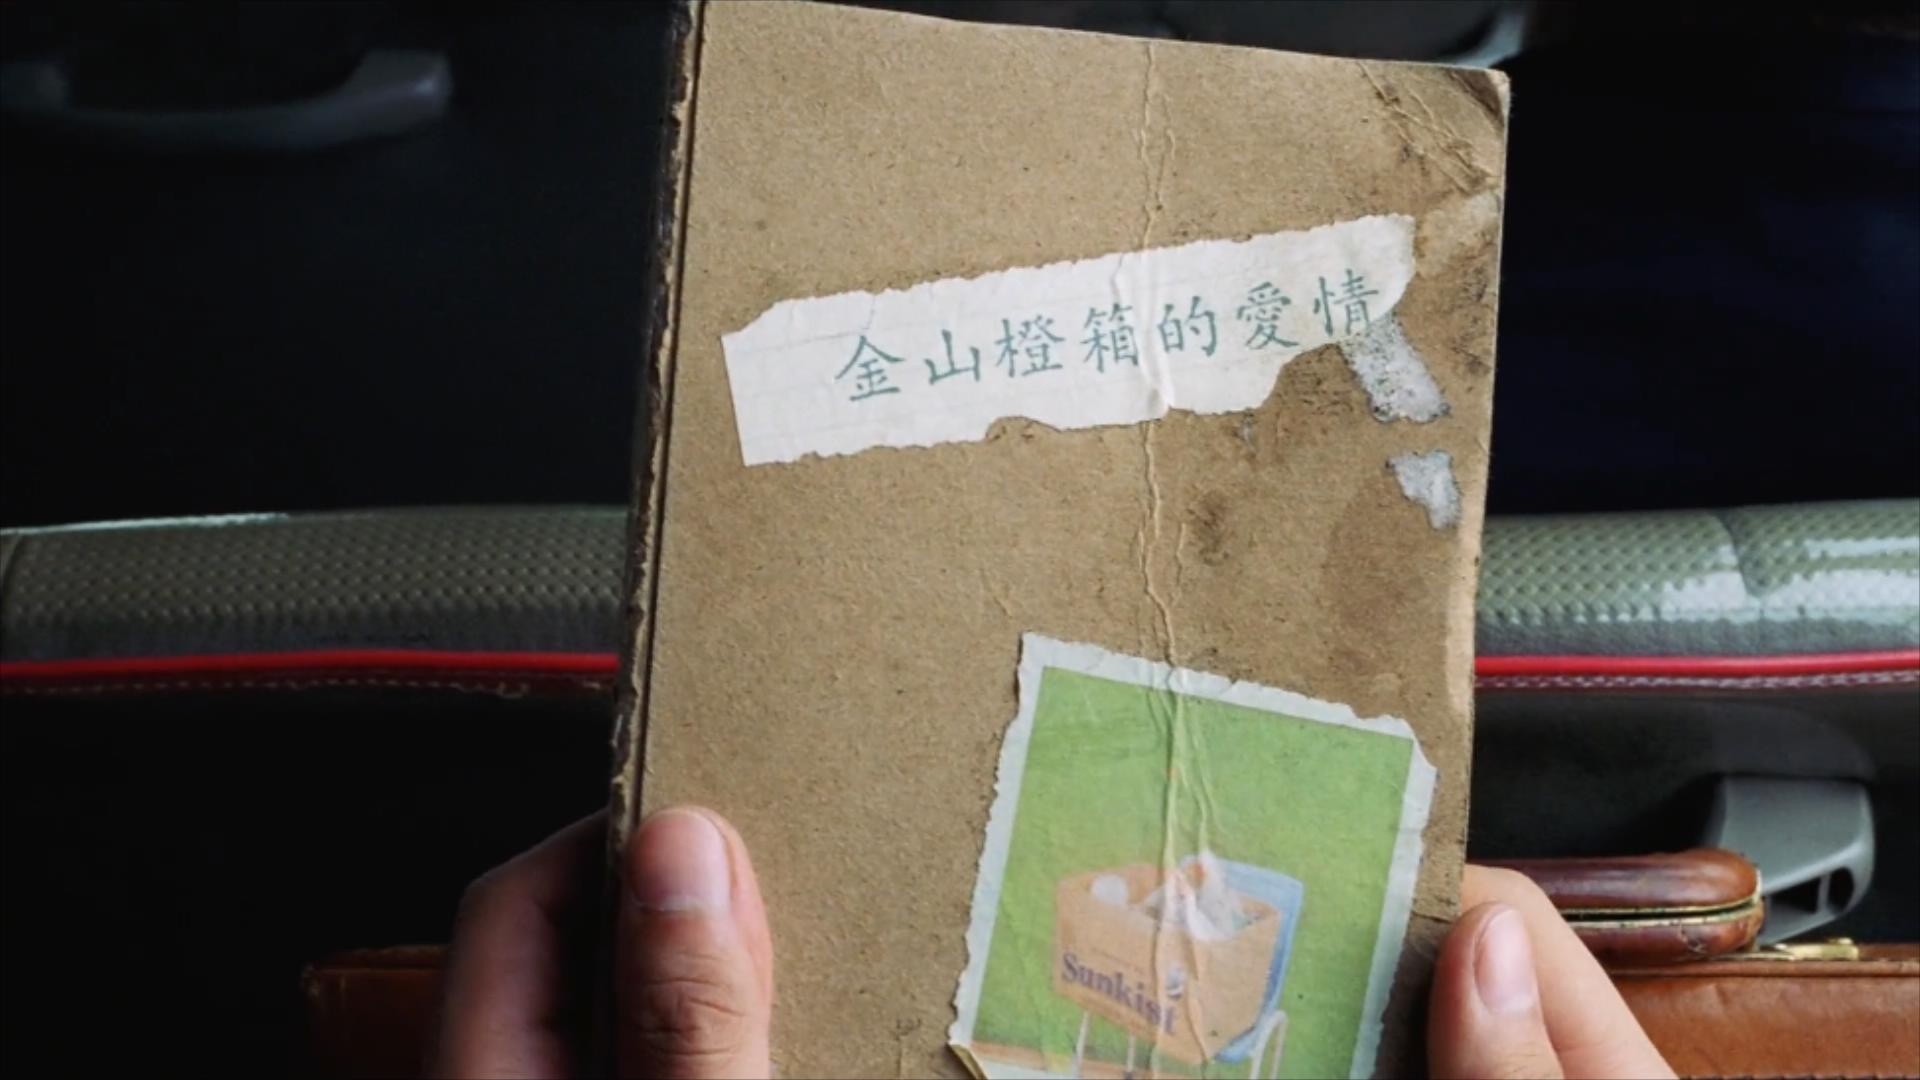 金山橙箱的愛情
Sunkist